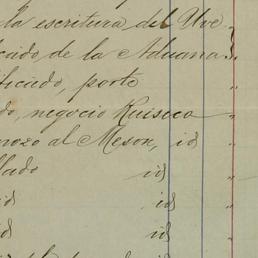 la escritura del Uve
cado de la Aduana
ficado, porte "
do, negocio Ruiseca "
mozo al Meson, id "
llado id "
id id "
id id "